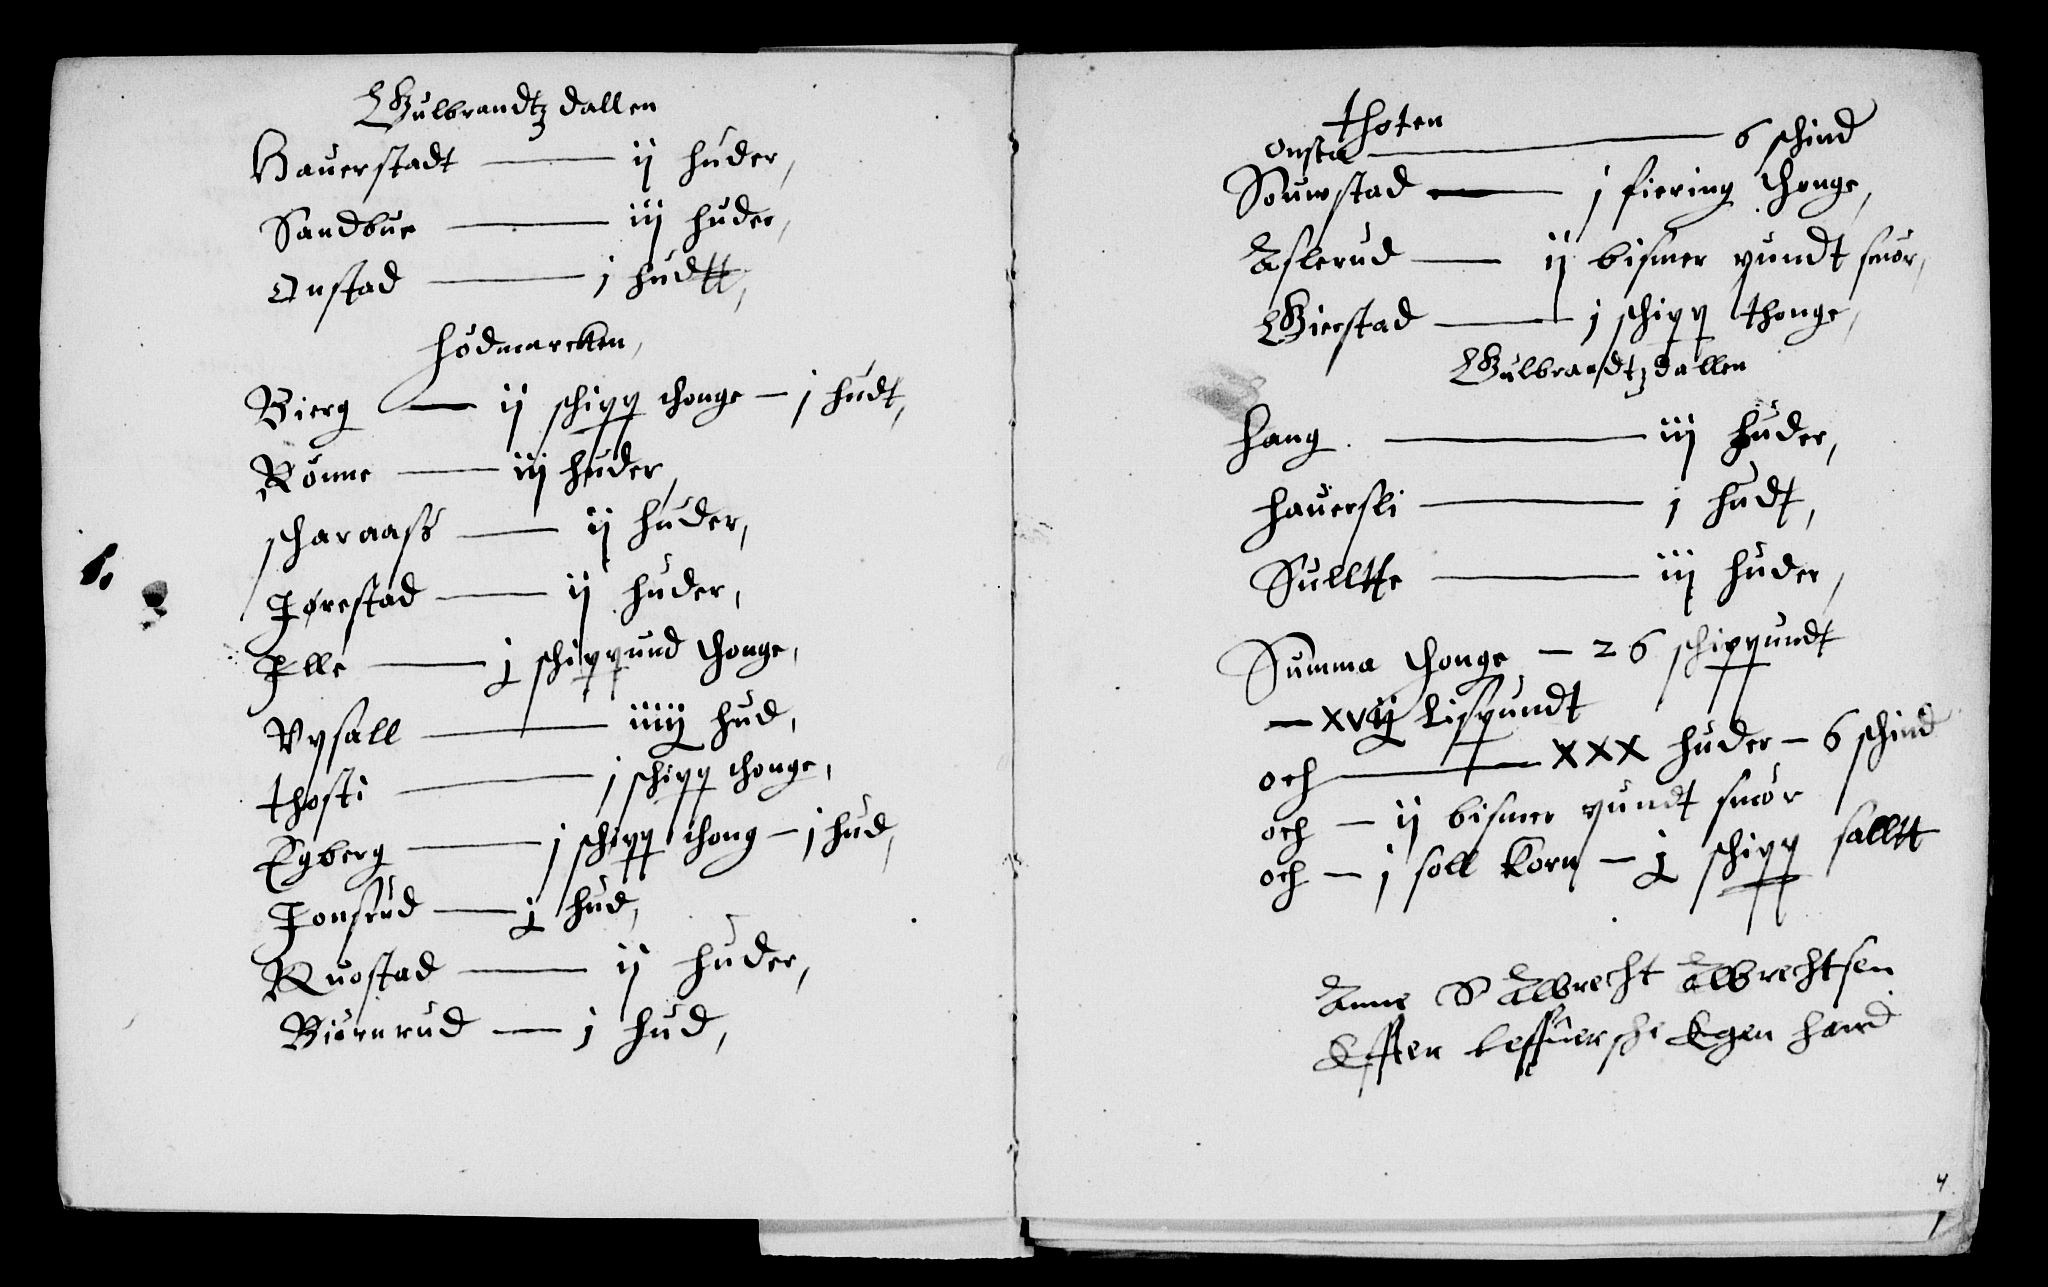 Gulbrandtz dallen
Hauerstadt — ij huder,
Sandbue — iij huder,
Onstad — j hudtt,
Hødmarcken,
Bierg — ij schipp thonge — j hudt,
Rønne — iij huder,
scharaass — ij huder,
Jørestad — ij huder,
Jlle — j schippund thonge,
Vysall — iiiij hud,
thosti — j schipp thonge,
Egberg — j schipp thong — j hud,
Jonsrud — j hud,
Ruostad — ij huder,
Biørnrud — j hud,
thoten
Onsta — 6 schind
Souwstad — j fiering thonge,
Aslerud — ij bismer pundt smør,
Gierstad — j schipp thonge,
Gulbrandtz dallen
Haug — iij huder,
Hauersli — j hudt,
Sulltte — iij huder,
Summa thonge — 26 schippundt
— xvij Lispundt
och — xxx huder — 6 schind
och — ij bismer pundt smør
och — j soll Korn — j schipp salltt
Anne S Albrecht Albrechtsen
Effter leffuerschi Egen hand
4
1